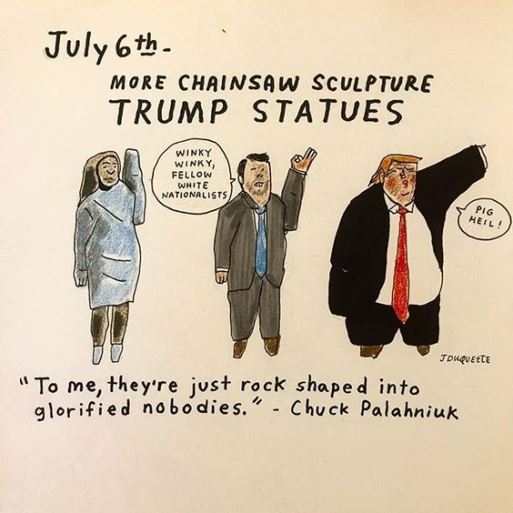 July 6th-
MORE CHAINSAW SCULPTURE
TRUMP STATUES
WINKY
WINKY,
FELLOW
WHITE
NATIONALISTS
PIG
HEIL!
JDUQUETTE
"To me, they're just rock shaped into
glorified nobodies." - Chuck Palahniuk